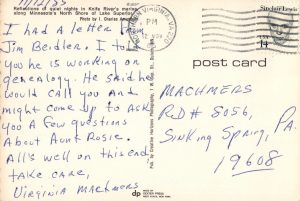 11/12/85
Reflections of quiet nights in Knife River's marina
along Minnesota's North Shore of Lake Superior.
Photo by I. Charles
I had a letter from
Jim Beidler. I told
you he is working on
genealogy. He said he
would call you and
might come up to ask
you a few questions
about Aunt Rosie.
All's well on this end.
Take care,
Virginia Machmers
PM
Sinclair Lewis
USA
14
post card
MACHMERS
R.D# 8056,
Sinking Spring, Pa.
19608
Pub. by
dp
DEXTER PRESS